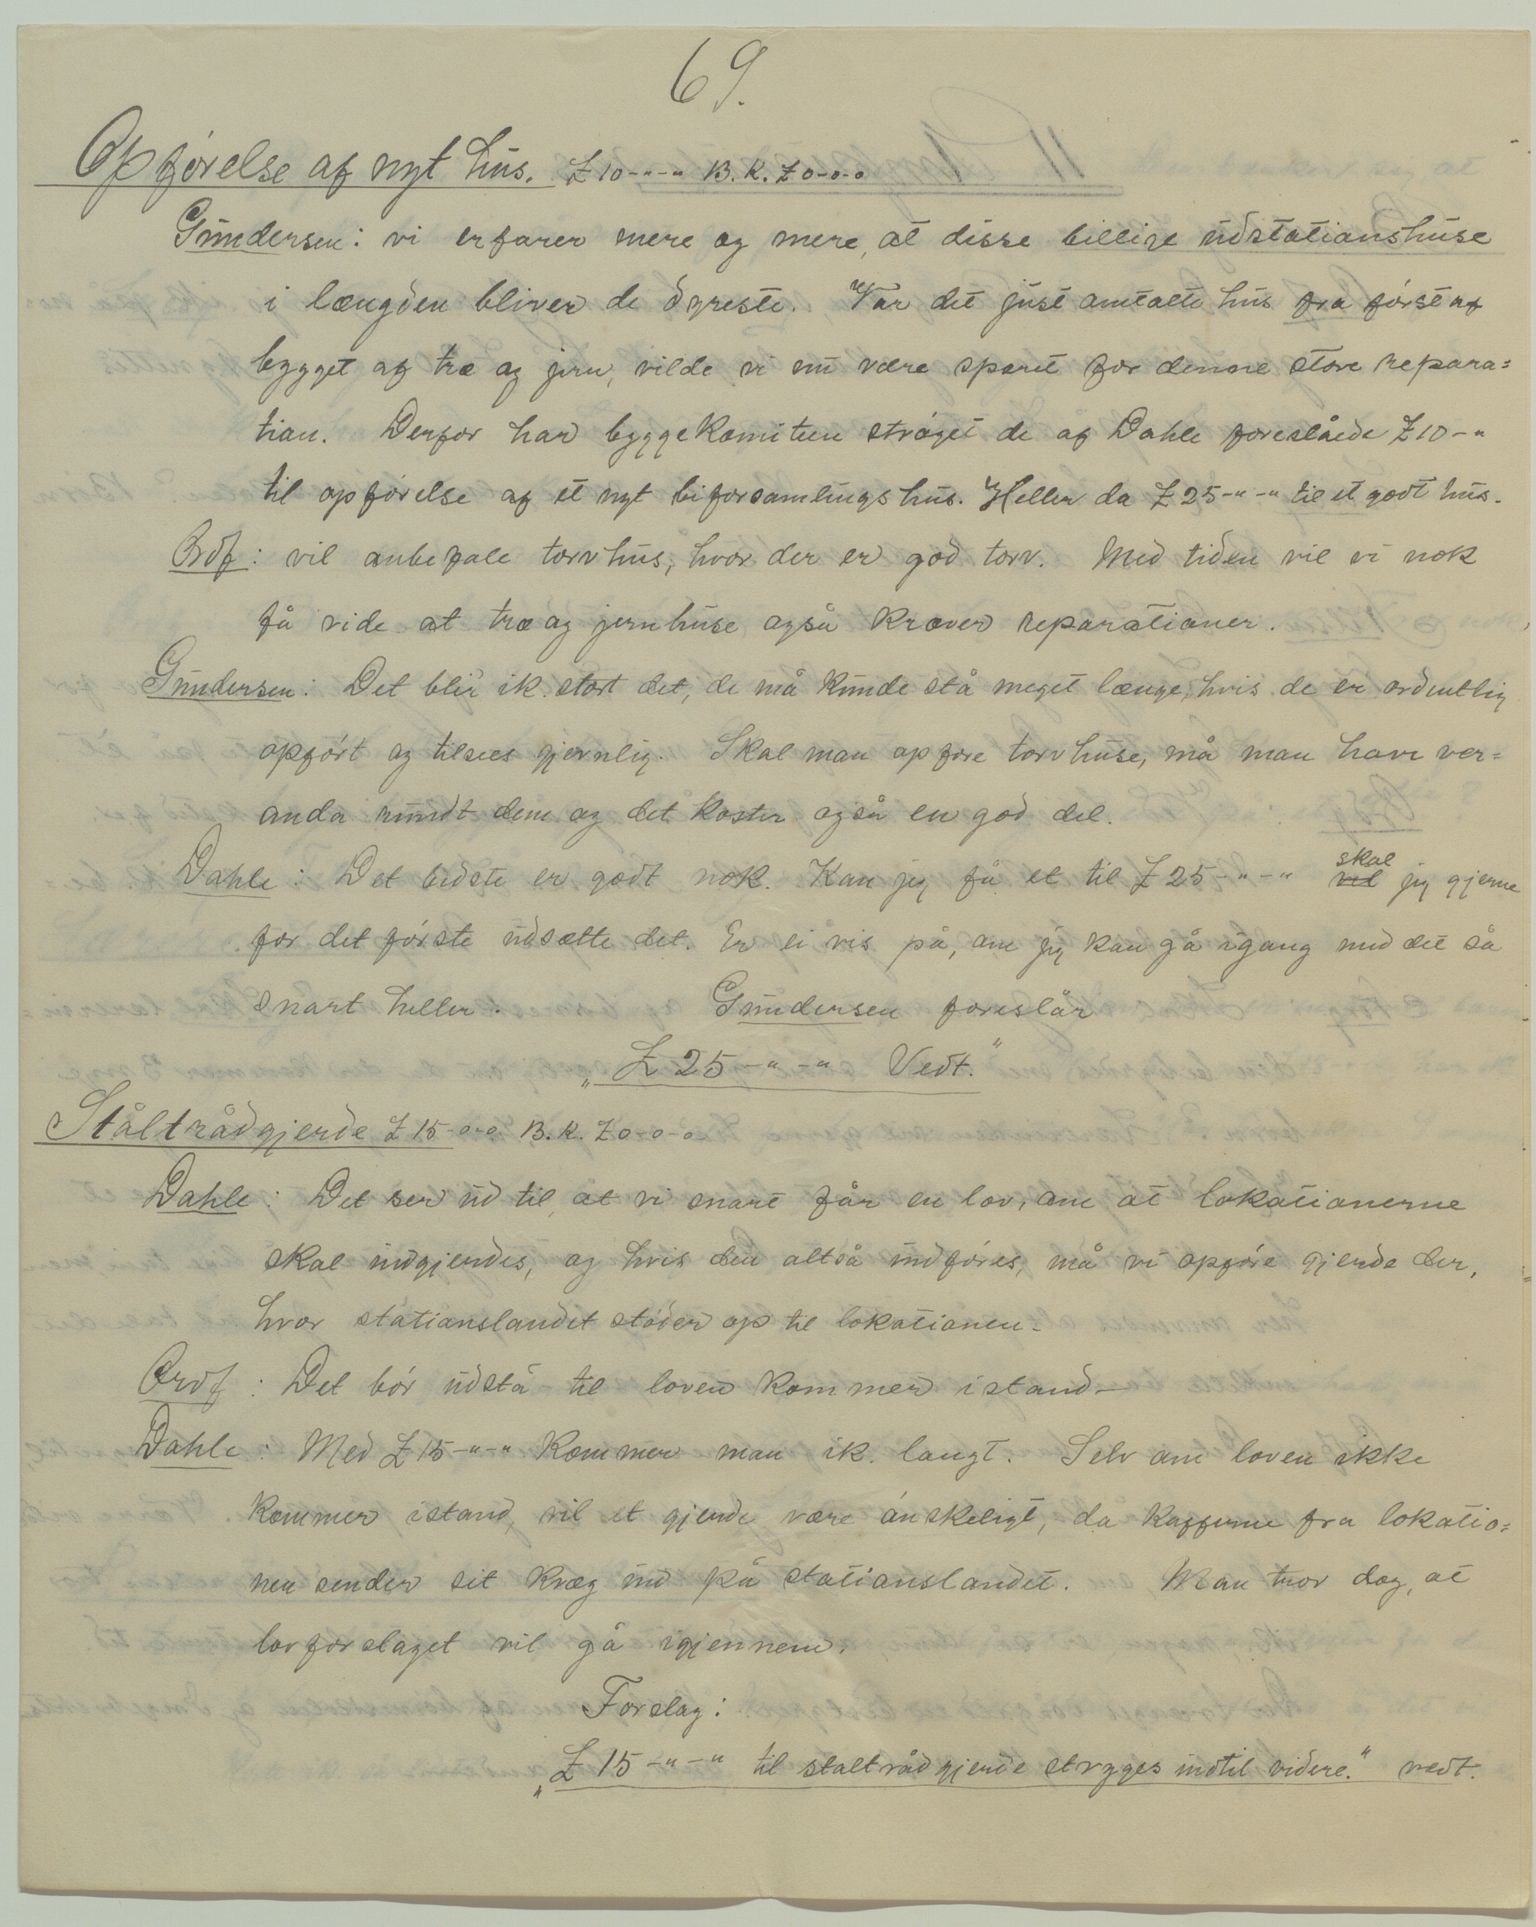 69.
Opførelse af nyt hus. £ 10-"-" B. K. £ 0-0-0
Gundersen: vi erfarer mere og mere, at disse billige udstationshuse
i længden bliver de dyreste. Var det just omtalte hus fra först af
bygget af træ og jern, vilde vi nu være sparet for denne store repara=
tion. Derfor har byggekomiteen strøget de af Dahle foreslåede £ 10-"
til opførelse af et nyt biforsamlingshus. Heller da £ 25-"-" til et godt hus.
Ordf: vil anbefale torvhus, hvor der er god torv. Med tiden vil vi nok
få vide at træ og jernhuse også kræver reparationer.
Gundersen: Det blir ik. stort det, de må kunde stå meget længe, hvis de er ordentlig
opført og tilsees jevnlig. Skal man opføre torvhuse, må man have ver=
anda rundt dem og det koster også en god del.
Dahle: Det bedste er godt nok. Kan jeg få et til £ 25-"-" vil skal jeg gjerne
for det første udsætte det. Er ei vis på, om jeg kan gå igang med det så
snart heller. Gundersen foreslår
„£ 25-"-" Vedt."
Ståltrådgjerde £ 15-0-0. B. K. £ 0-0-0
Dahle: Det ser ud til, at vi snart får en lov, om at lokationerne
skal indgjerdes, og hvis den altså indføres, må vi opføre gjerde der,
hvor stationslandet støder op til lokationen.
Ordf: Det bør udstå til loven kommer istand-
Dahle: Med £ 15-"-" kommer man ik. langt. Selv om loven ikke
kommer istand, vil et gjerde være ønskeligt, da kafferne fra lokatio=
nen sender sit kvæg ind på stationslandet. Man tror dog, at
lovforslaget vil gå igjennem.
Forslag:
„£ 15-"-" til ståltrådgjerde stryges indtil videre." vedt.